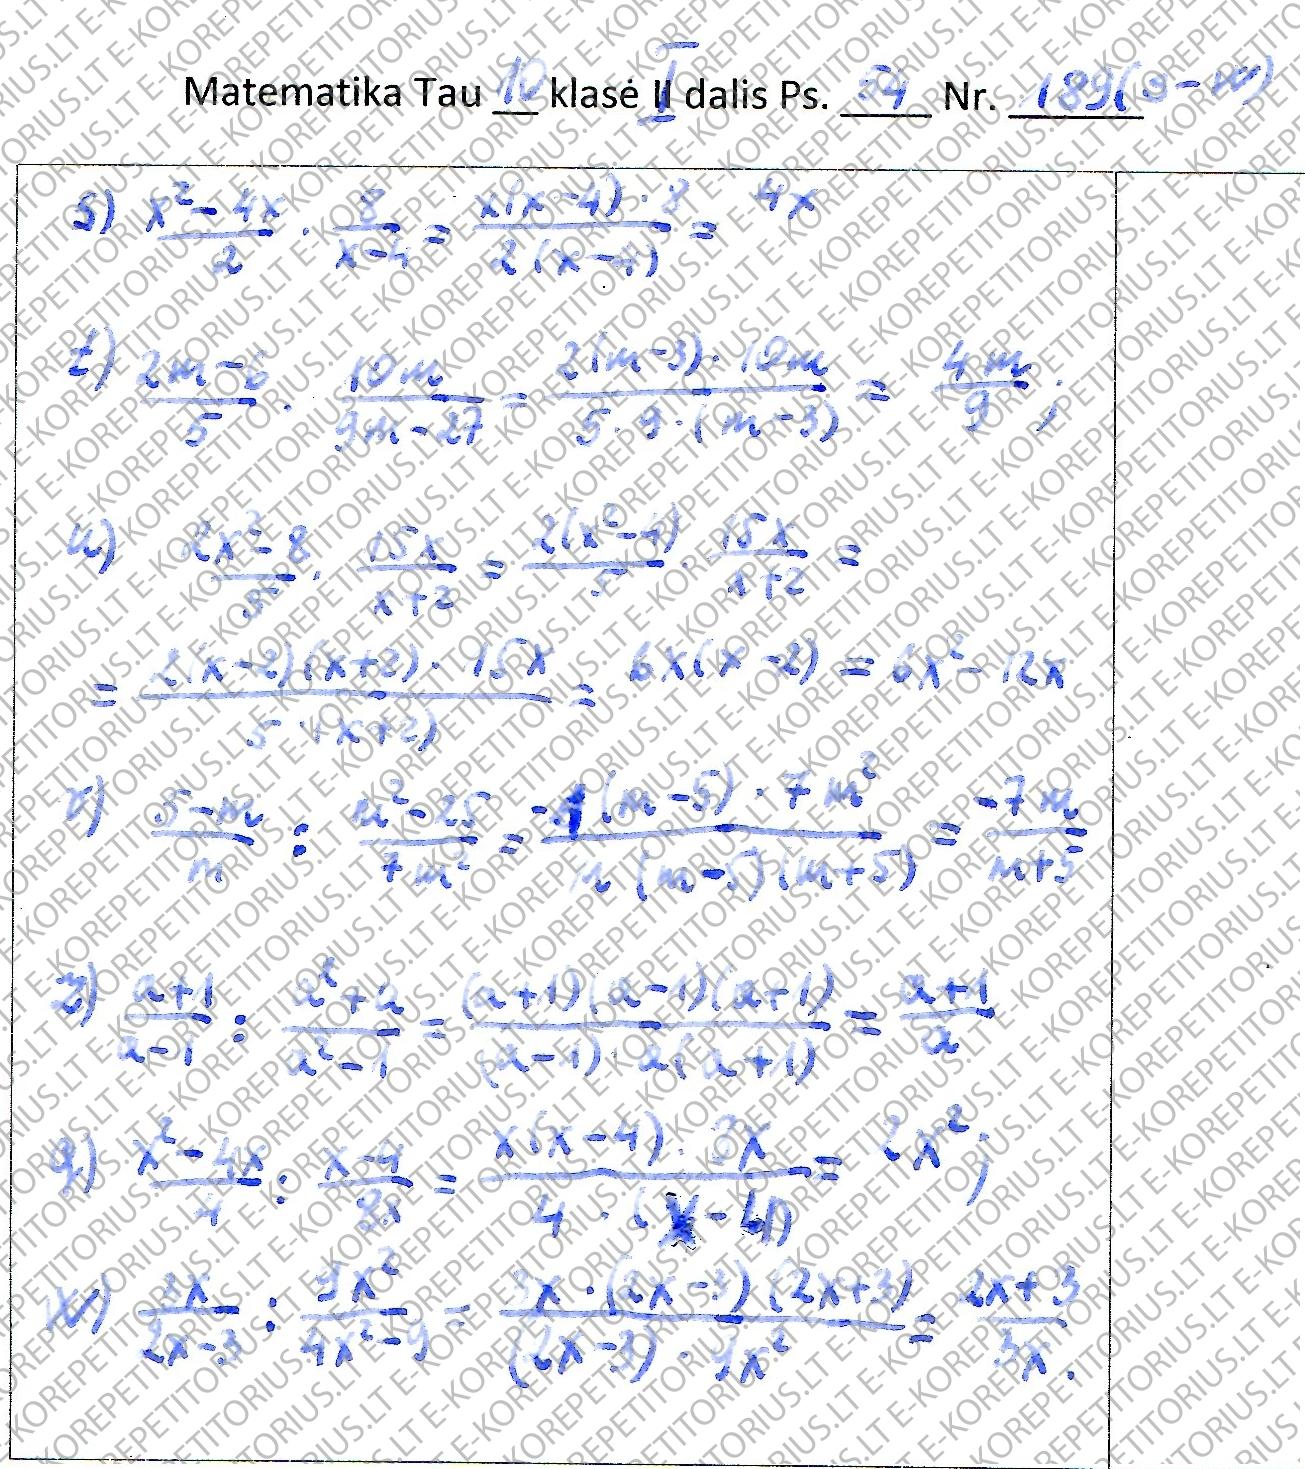 Matematika Tau 10 klasė II dalis Ps. 54 Nr. 189(s-w)
s) (x² - 4x)/2 · 8/(x-4) = (x(x-4)·8)/(2(x-4)) = 4x
t) (2m-6)/5 · 10m/(9m-27) = (2(m-3)·10m)/(5·9·(m-3)) = 4m/9;
u) (2x²-8)/5 · 15x/(x+2) = 2(x²-4)/5 · 15x/(x+2) =
= (2(x-2)(x+2)·15x)/(5·(x+2)) = 6x(x-2) = 6x² - 12x
v) (5-m)/m : (m²-25)/7m² = (-1(m-5)·7m²)/(m(m-5)(m+5)) = -7m/(m+5)
z) (a+1)/(a-1) : (a²+a)/(a²-1) = ((a+1)(a-1)(a+1))/((a-1)·a(a+1)) = (a+1)/a
q) (x²-4x)/4 : (x-4)/8x = (x(x-4)·8x)/(4·(x-4)) = 2x²;
w) 3x/(2x-3) : 9x²/(4x²-9) = (3x·(2x-3)(2x+3))/((2x-3)·9x²) = (2x+3)/3x.
E-KOREPETITORIUS.LT